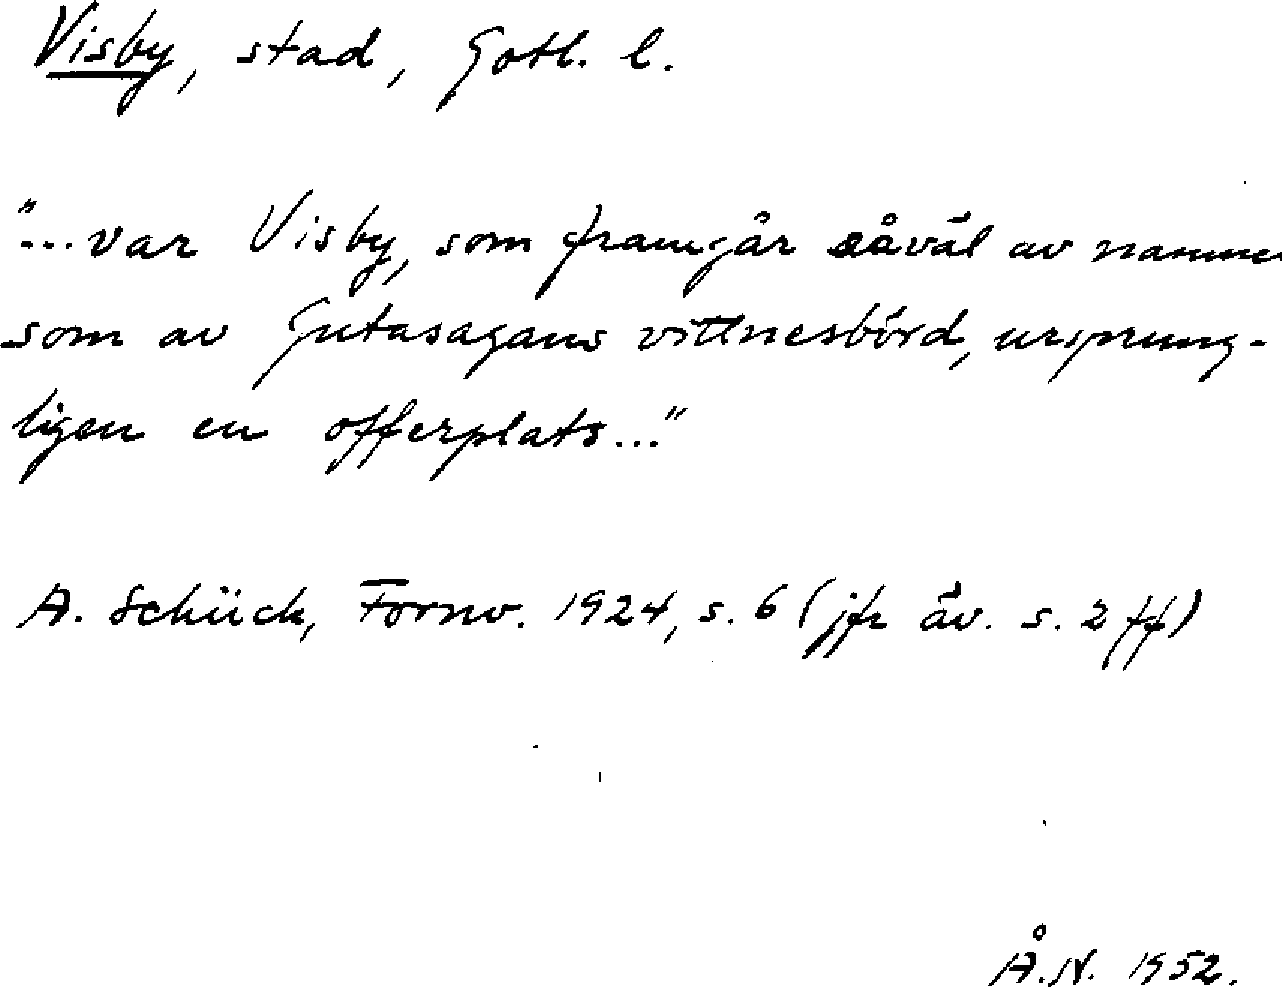 Visby, stad, Gotl. l.
"...var Visby, som framgår såväl av namne
som av Gutasagans vittnesbörd, ursprung-
ligen en offerplats..."
A. Schück, Fornv. 1924, s. 6 (jfr äv. s. 2 ff)
Å.N. 1952.